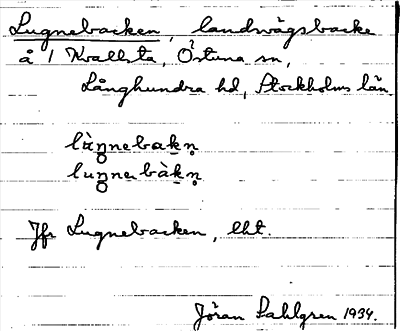 Lugnebacken, landsvägsbacke
å 1 Kvallsta, Östuna sn,
Långhundra hd, Stockholms län.
Jfr Lugnebacken, lht.
Jöran Sahlgren 1934.